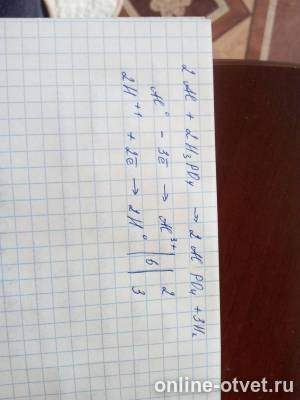 2 Al + 2H₃PO₄ → 2 Al PO₄ + 3H₂
Al⁰ - 3ē → Al³⁺ | 6 | 2
2H⁺¹ + 2ē → 2H⁰ | | 3
online-otvet.ru